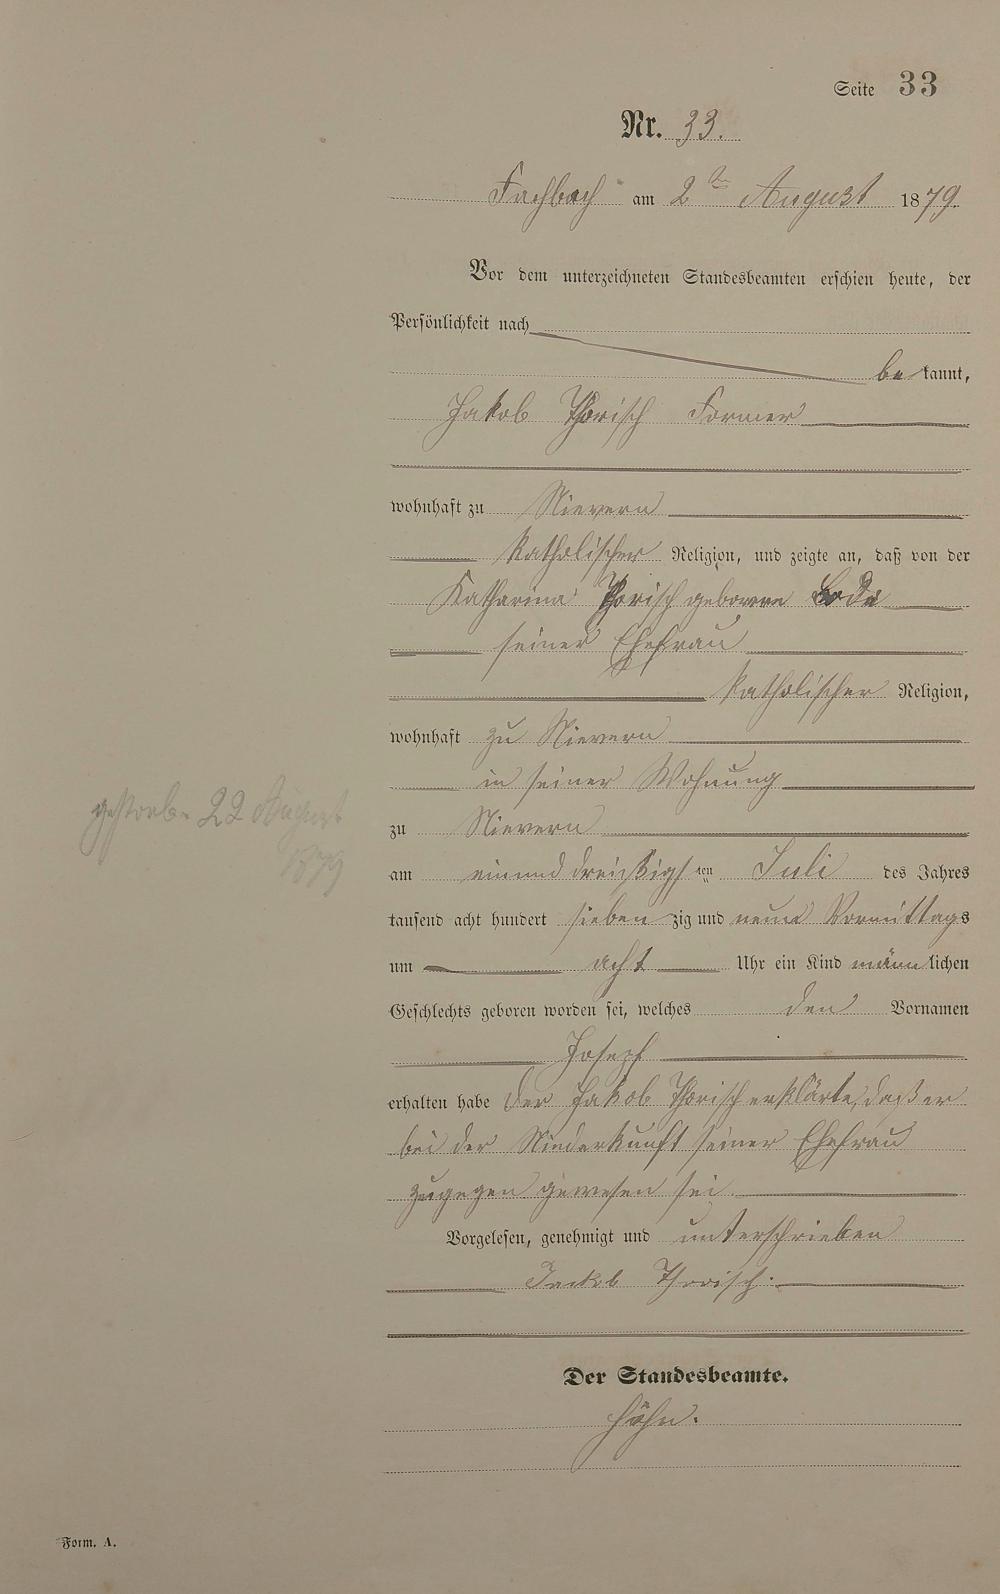 Seite 33
Nr. 33.
Fachbach am 2ten August 1879.
Vor dem unterzeichneten Standesbeamten erschien heute, der
Persönlichkeit nach
bekannt,
Jakob Thorisch Former
wohnhaft zu Nievern
katholischer Religion, und zeigte an, daß von der
Katharina Thorisch geborene
seiner Ehefrau
katholischer Religion,
wohnhaft zu Nievern
in seiner Wohnung
zu Nievern
am einunddreißigsten Juli des Jahres
tausend acht hundert siebenzig und neun Vormittags
um acht Uhr ein Kind männlichen
Geschlechts geboren worden sei, welches den Vornamen
Joseph
erhalten habe der Jakob Thorisch erklärte, daß er
bei der Niederkunft seiner Ehefrau
zugegen gewesen sei.
Vorgelesen, genehmigt und unterschrieben
Jackob Thorisch.
Der Standesbeamte.
Höhn.
gestorb. 22 August
1879
Form. A.